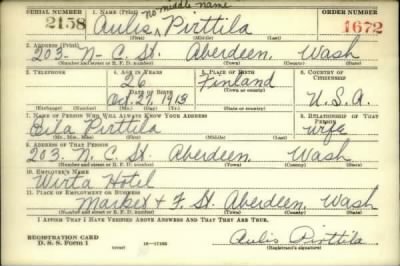 SERIAL NUMBER 1. NAME (Print) no middle name ORDER NUMBER
2158 Aulis Pirttila 1672
2. ADDRESS (Print)
203 - N - C St. Aberdeen, Wash
(Number and street or R. F. D. number) (Town) (County) (State)
3. TELEPHONE 4. AGE IN YEARS 5. PLACE OF BIRTH 6. COUNTRY OF CITIZENSHIP
26 Finland
DATE OF BIRTH (Town or county)
Oct. 27 1913 U.S.A.
(Exchange) (Number) (Mo.) (Day) (Yr.) (State or country)
7. NAME OF PERSON WHO WILL ALWAYS KNOW YOUR ADDRESS 8. RELATIONSHIP OF THAT PERSON
Pirttila wife
(Mr., Mrs., Miss) (First) (Middle) (Last)
9. ADDRESS OF THAT PERSON
203 N. C St. Aberdeen Wash
(Number and street or R. F. D. number) (Town) (County) (State)
10. EMPLOYER'S NAME
Wirta Hotel
11. PLACE OF EMPLOYMENT OR BUSINESS
Market & F. St. Aberdeen, Wash
(Number and street or R. F. D. number) (Town) (County) (State)
I AFFIRM THAT I HAVE VERIFIED ABOVE ANSWERS AND THAT THEY ARE TRUE.
REGISTRATION CARD
D. S. S. Form 1 (over) Aulis Pirttila
(Registrant's signature)